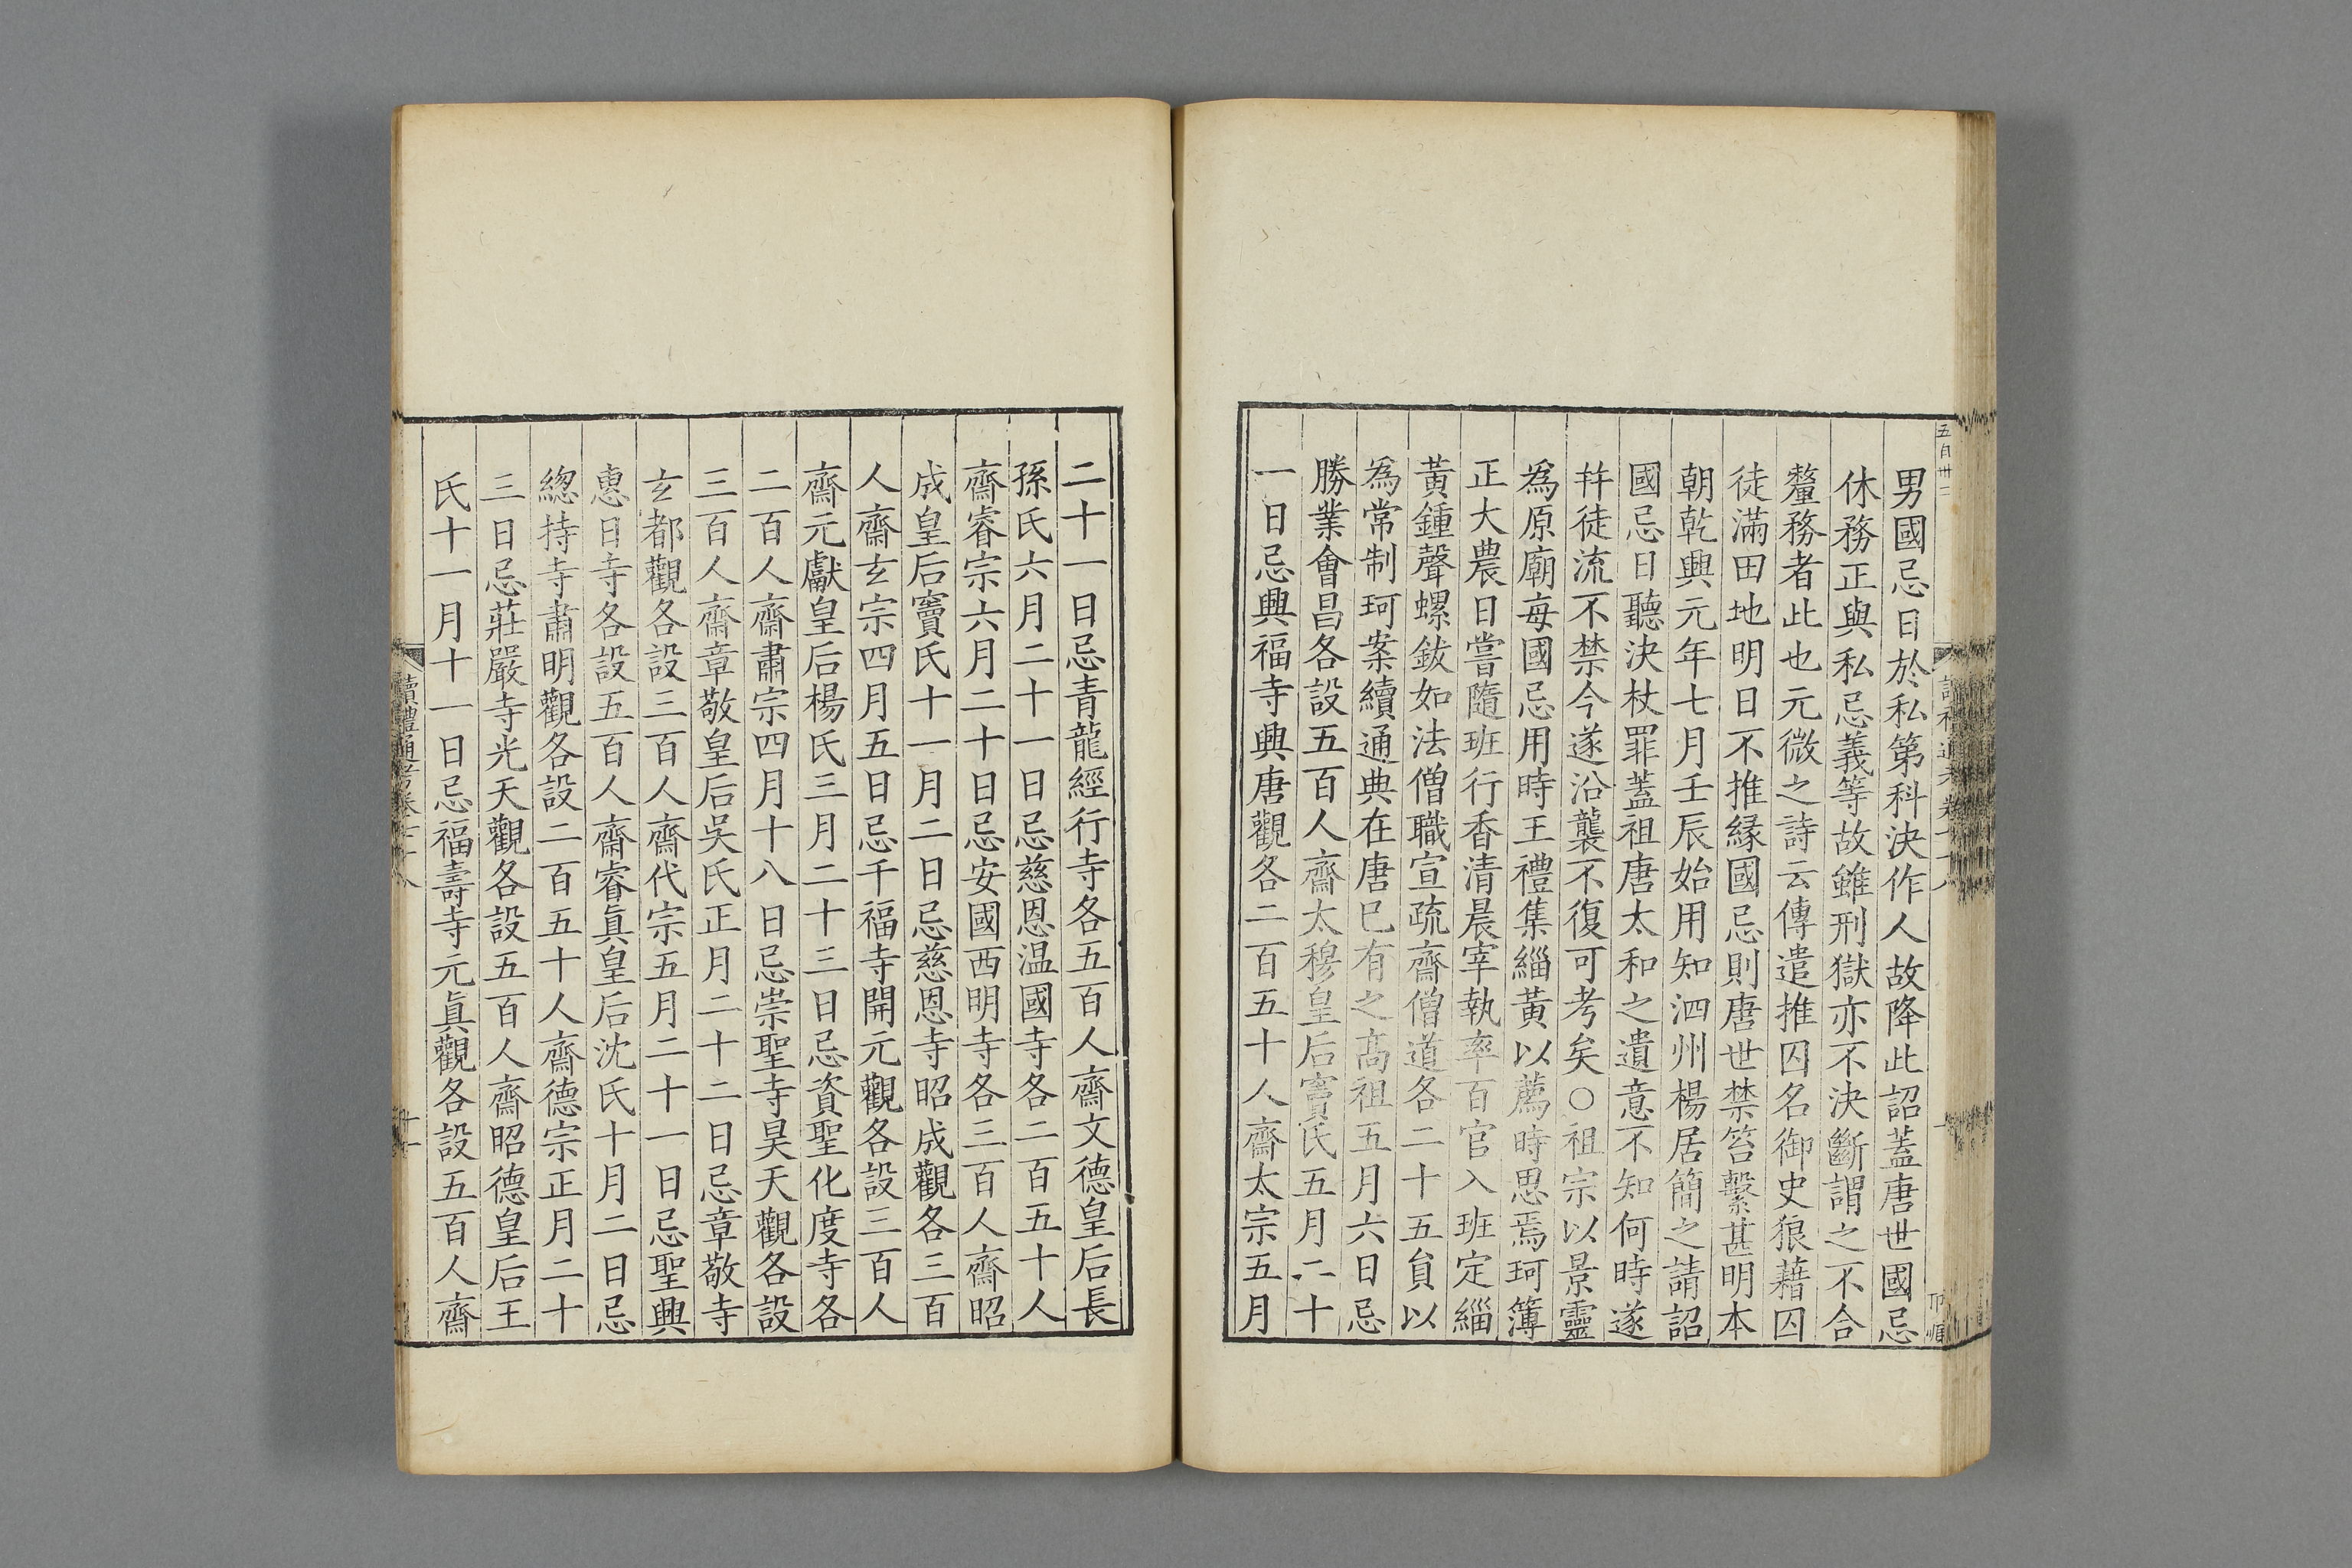 男國忌日於私第科決作人故降此詔蓋唐世國忌
休務正與私忌義等故雖刑獄亦不決斷謂之不合
釐務者此也元微之詩云傳遣推囚名御史狼藉囚
徒滿田地明日不推緣國忌則唐世禁笞繫甚明本
朝乾興元年七月壬辰始用知泗州楊居簡之請詔
國忌日聽決杖罪蓋祖唐太和之遺意不知何時遂
幷徒流不禁今遂沿襲不復可考矣○祖宗以景靈
為原廟每國忌用時王禮集緇黃以薦時思焉珂簿
正大農日嘗隨班行香清晨宰執率百官入班定緇
黃鍾聲螺鈸如法僧職宣疏齋僧道各二十五員以
為常制珂案續通典在唐已有之高祖五月六日忌
勝業會昌各設五百人齋太穆皇后竇氏五月二十
一日忌興福寺興唐觀各二百五十人齋太宗五月
二十一日忌青龍經行寺各五百人齋文德皇后長
孫氏六月二十一日忌慈恩温國寺各二百五十人
齋睿宗六月二十日忌安國西明寺各三百人齋昭
成皇后竇氏十一月二日忌慈恩寺昭成觀各三百
人齋玄宗四月五日忌千福寺開元觀各設三百人
齋元獻皇后楊氏三月二十三日忌資聖化度寺各
二百人齋肅宗四月十八日忌崇聖寺昊天觀各設
三百人齋章敬皇后吳氏正月二十二日忌章敬寺
玄都觀各設三百人齋代宗五月二十一日忌聖興
惠日寺各設五百人齋睿真皇后沈氏十月二日忌
緫持寺肅明觀各設二百五十人齋德宗正月二十
三日忌莊嚴寺光天觀各設五百人齋昭德皇后王
氏十一月十一日忌福壽寺元真觀各設五百人齋
讀禮通考卷七十八